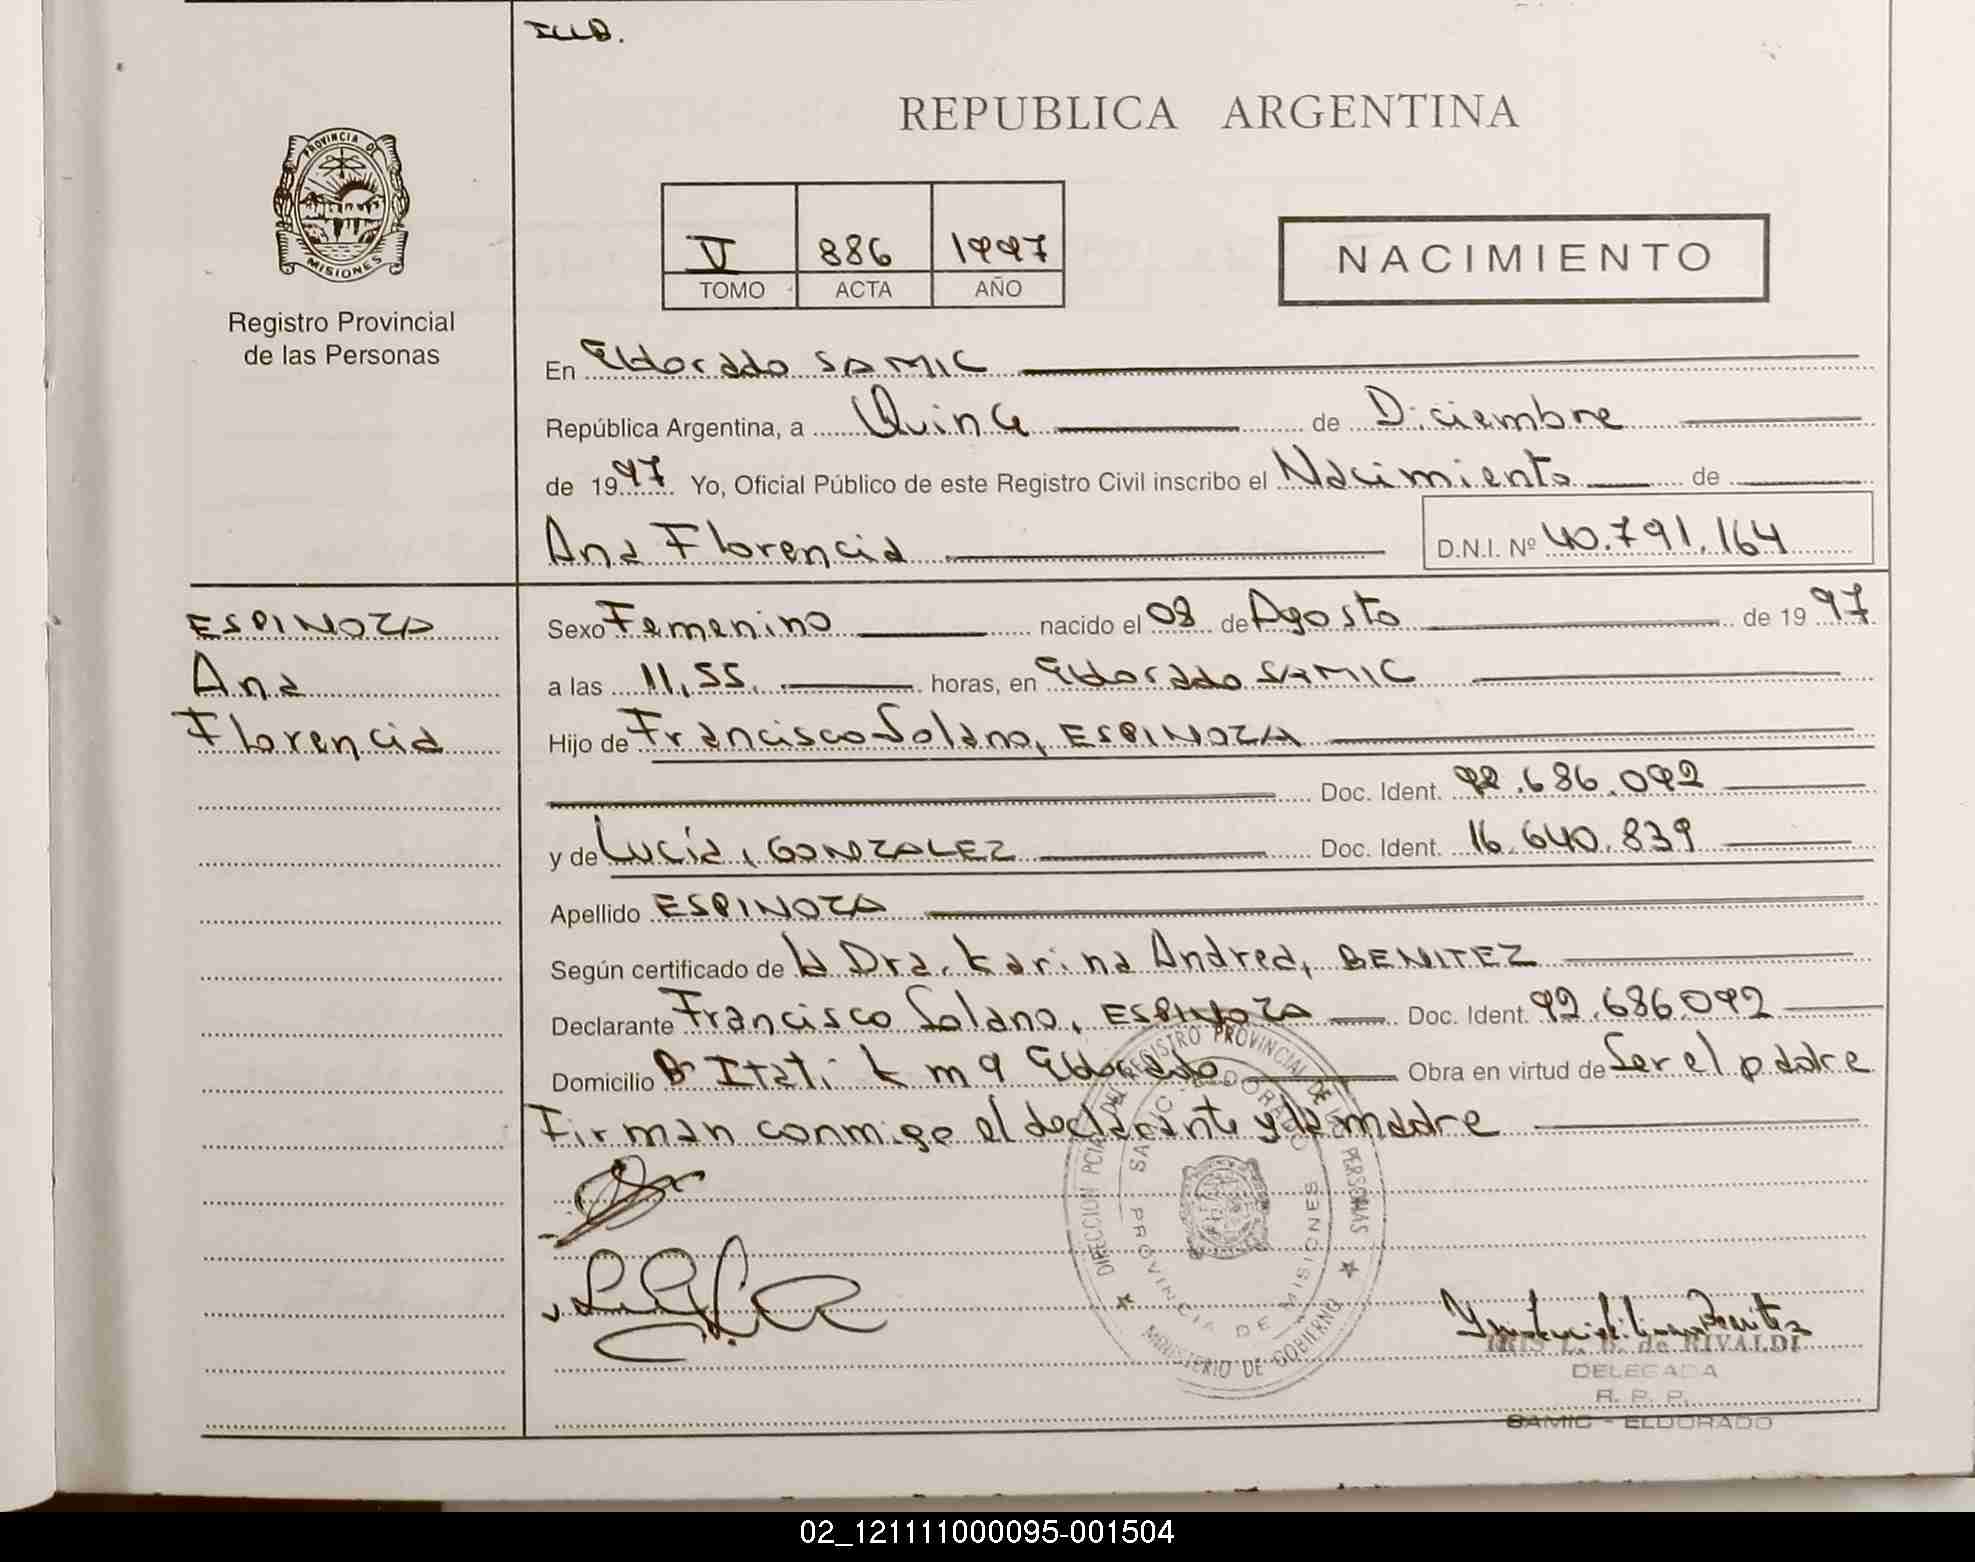 REPUBLICA ARGENTINA
PROVINCIA DE
MISIONES
Registro Provincial
de las Personas
V 886 1997
TOMO ACTA AÑO
NACIMIENTO
En Eldorado SAMIC
República Argentina, a Quince de Diciembre
de 1997 Yo, Oficial Público de este Registro Civil inscribo el Nacimiento de
Ana Florencia D.N.I. Nº 40.791.164
ESPINOZA
Ana
Florencia
Sexo Femenino nacido el 08 de Agosto de 1997
a las 11,55 horas, en Eldorado SAMIC
Hijo de Francisco Solano, ESPINOZA
Doc. Ident. 92.686.092
y de Lucía, GONZALEZ Doc. Ident. 16.640.839
Apellido ESPINOZA
Según certificado de la Dra. Karina Andrea, BENITEZ
Declarante Francisco Solano, ESPINOZA Doc. Ident. 92.686.092
Domicilio Bº Itatí km 9 Eldorado Obra en virtud de Ser el padre
Firman conmigo el declarante y la madre
DIRECCION PCIAL DEL REGISTRO PROVINCIAL DE LAS PERSONAS
MINISTERIO DE GOBIERNO
SAMIC ELDORADO
PROVINCIA DE MISIONES
IRIS L. B. de RIVALDI
DELEGADA
R. P. P.
SAMIC - ELDORADO
02_121111000095-001504